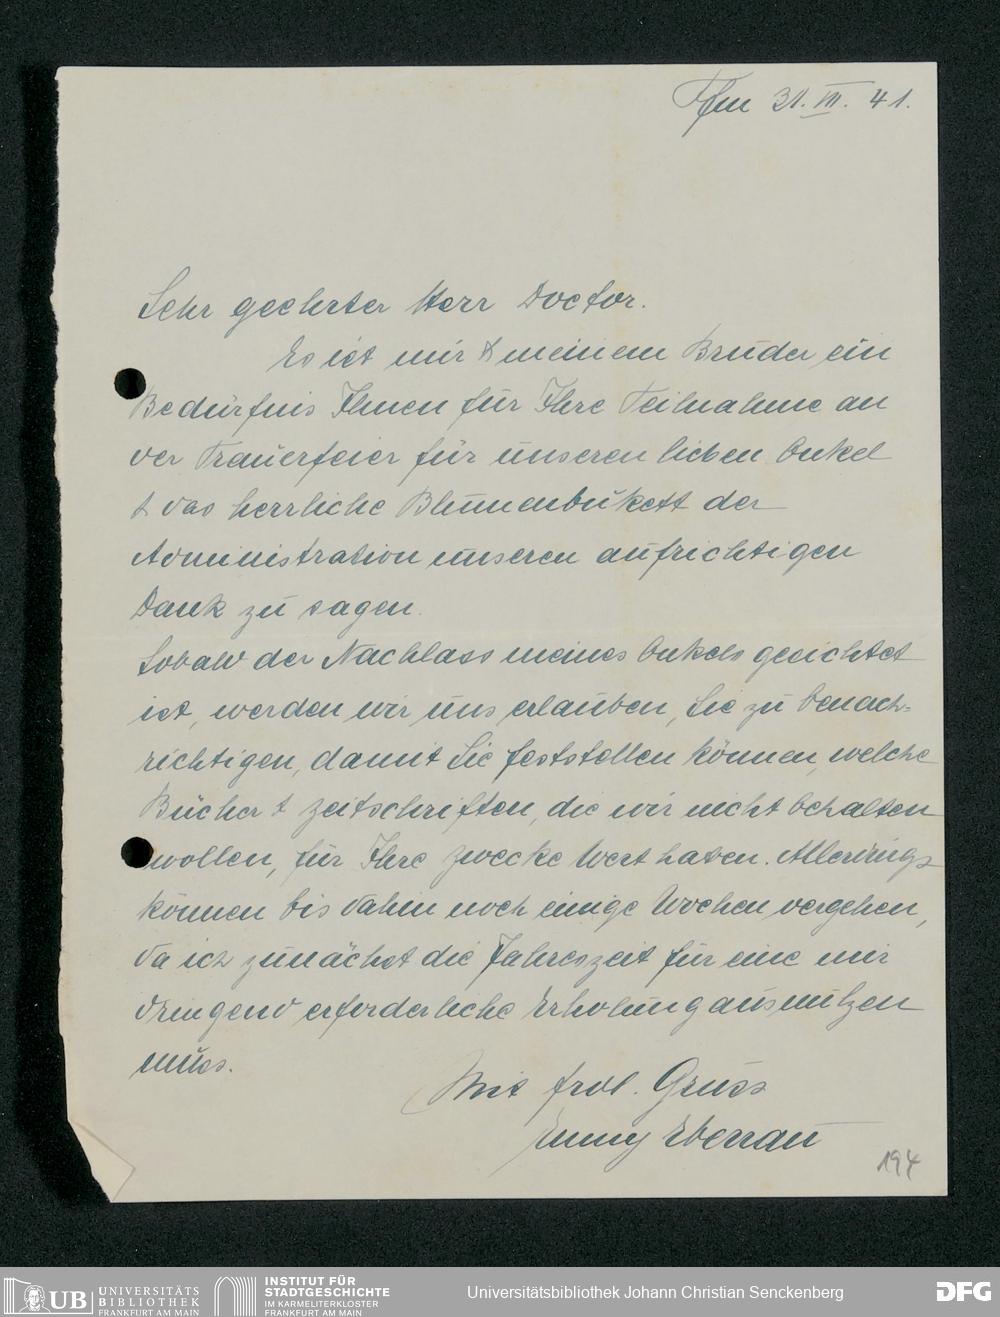 Ffm 31. VII. 41.
Sehr geehrter Herr Doctor.
Es ist mir & meinem Bruder ein
Bedürfnis Ihnen für Ihre Teilnahme an
der Trauerfeier für unseren lieben Onkel
& das herrliche Blumenbukett der
Administration unseren aufrichtigen
Dank zu sagen.
Sobald der Nachlass meines Onkels gesichtet
ist, werden wir uns erlauben, Sie zu benach-
richtigen, damit Sie feststellen können, welche
Bücher & Zeitschriften, die wir nicht behalten
wollen, für Ihre Zwecke Wert haben. Allerdings
können bis dahin noch einige Wochen vergehen,
da ich zunächst die Jahreszeit für eine mir
dringend erforderliche Erholung ausnützen
muss.
Mit frdl. Gruss
Emmy Eberrau
194
UB UNIVERSITÄTS
BIBLIOTHEK
FRANKFURT AM MAIN
INSTITUT FÜR
STADTGESCHICHTE
IM KARMELITERKLOSTER
FRANKFURT AM MAIN
Universitätsbibliothek Johann Christian Senckenberg
DFG